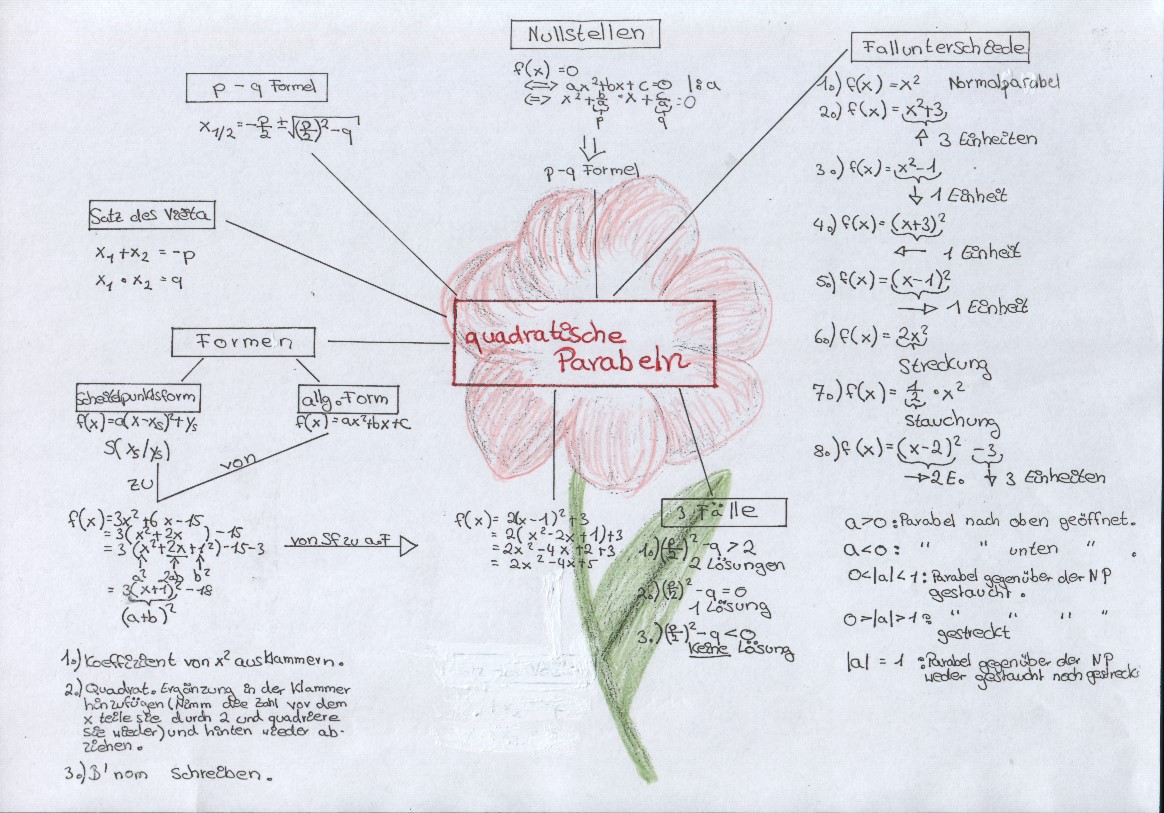 Nullstellen
f(x) = 0
<=> ax²+bx+c=0 |:a
<=> x² + b/a · x + c/a = 0
p q
p-q Formel
p-q Formel
x1/2 = -p/2 ± √((p/2)² - q)
Satz des Vieta
x1 + x2 = -p
x1 · x2 = q
Formen
Scheitelpunktsform
f(x)=a(x-xs)²+ys
S(xs/ys)
zu
allg. Form
f(x)=ax²+bx+c
von
f(x)=3x²+6x-15
= 3(x²+2x ) -15
= 3(x²+2x+1²)-15-3
a² 2ab b²
= 3(x+1)² -18
(a+b)²
1.) Koeffizient von x² ausklammern.
2.) Quadrat. Ergänzung in der Klammer
hinzufügen (Nimm die Zahl vor dem
x teile sie durch 2 und quadriere
sie wieder) und hinten wieder ab-
ziehen.
3.) B'nom schreiben.
von Sf zu a.F
quadratische
Parabeln
f(x) = 2(x-1)²+3
= 2(x²-2x+1)+3
= 2x²-4x+2+3
= 2x²-4x+5
3 Fälle
1.) (p/2)² -q > 2
2 Lösungen
2.) (p/2)² -q = 0
1 Lösung
3.) (p/2)² -q < 0
keine Lösung
Fallunterschiede
1.) f(x) = x² Normalparabel
2.) f(x) = x²+3
↑ 3 Einheiten
3.) f(x) = x²-1
↓ 1 Einheit
4.) f(x) = (x+3)²
← 1 Einheit
5.) f(x) = (x-1)²
→ 1 Einheit
6.) f(x) = 2x²
Streckung
7.) f(x) = 1/2 · x²
Stauchung
8.) f(x) = (x-2)² -3
→ 2 E. ↓ 3 Einheiten
a>0 : Parabel nach oben geöffnet.
a<0 : " " unten " .
0<|a|<1 : Parabel gegenüber der NP
gestaucht.
0>|a|>1 : " " " "
gestreckt
|a| = 1 : Parabel gegenüber der NP
weder gestaucht noch gestreckt